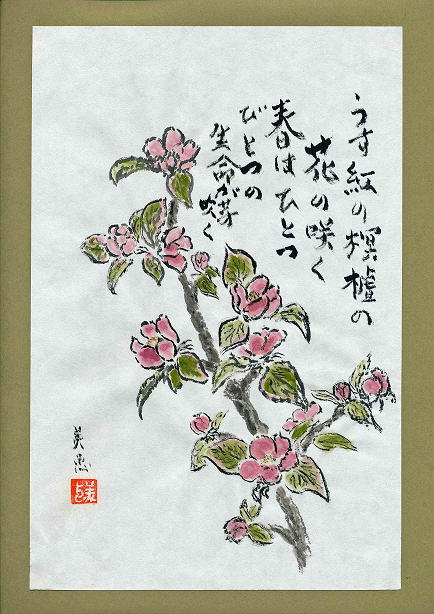 うす紅の榠樝の
花の咲く
春はひとつ
びとつの
生命が芽吹く